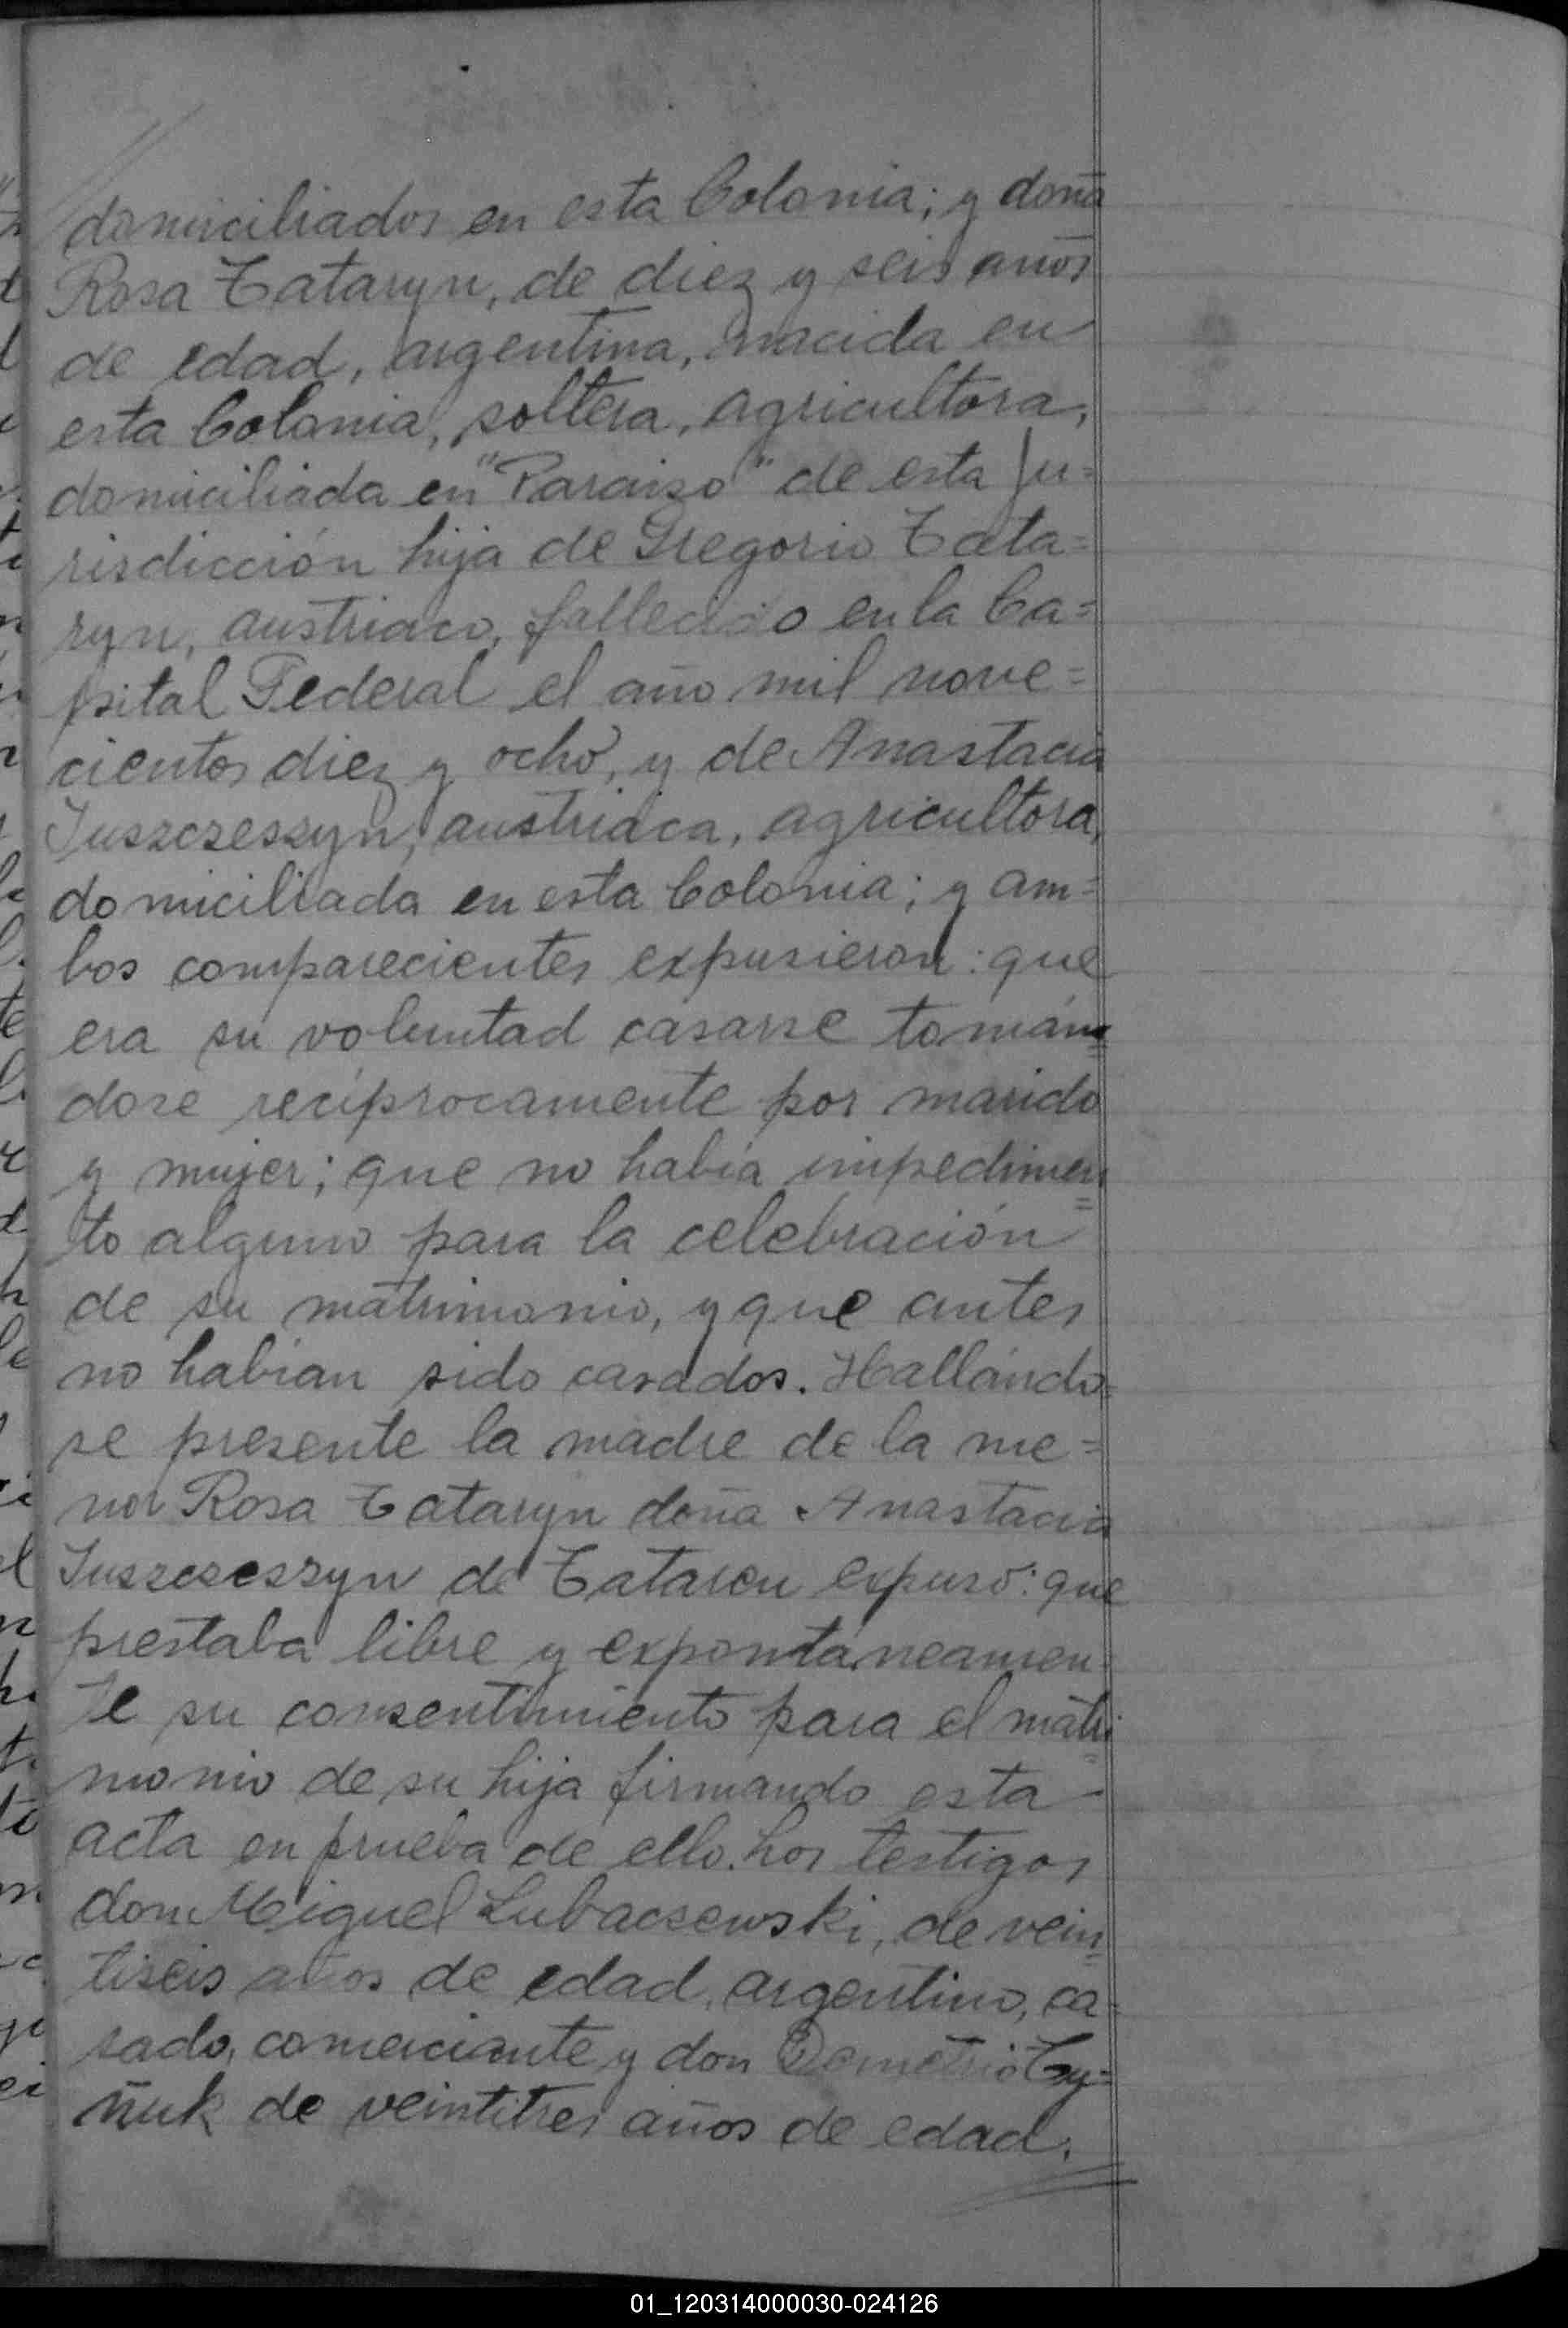 domiciliados en esta Colonia; y doña
Rosa Tataryn, de diez y seis años
de edad, argentina, nacida en
esta Colonia, soltera, agricultora,
domiciliada en "Paraiso" de esta Ju=
risdicción hija de Gregorio Tata=
ryn, austriaco, fallecido en la Ca=
pital Federal el año mil nove=
cientos diez y ocho, y de Anastacia
Juszczeszyn, austriaca, agricultora,
domiciliada en esta Colonia; y am=
bos comparecientes expusieron: que
era su voluntad casarse tomán=
dose recíprocamente por marido
y mujer; que no había impedimen=
to alguno para la celebración
de su matrimonio, y que antes
no habían sido casados. Hallándo=
se presente la madre de la me=
nor Rosa Tataryn doña Anastacia
Juszczeszyn de Tataren expuso: que
prestaba libre y expontáneamen=
te su consentimiento para el matri=
monio de su hija firmando esta
acta en prueba de ello. Los testigos
don Miguel Lubacsewski, de vein=
tiseis años de edad, argentino, ca=
sado, comerciante y don Demetrio Cy=
ñuk de veintitres años de edad,
01_120314000030-024126